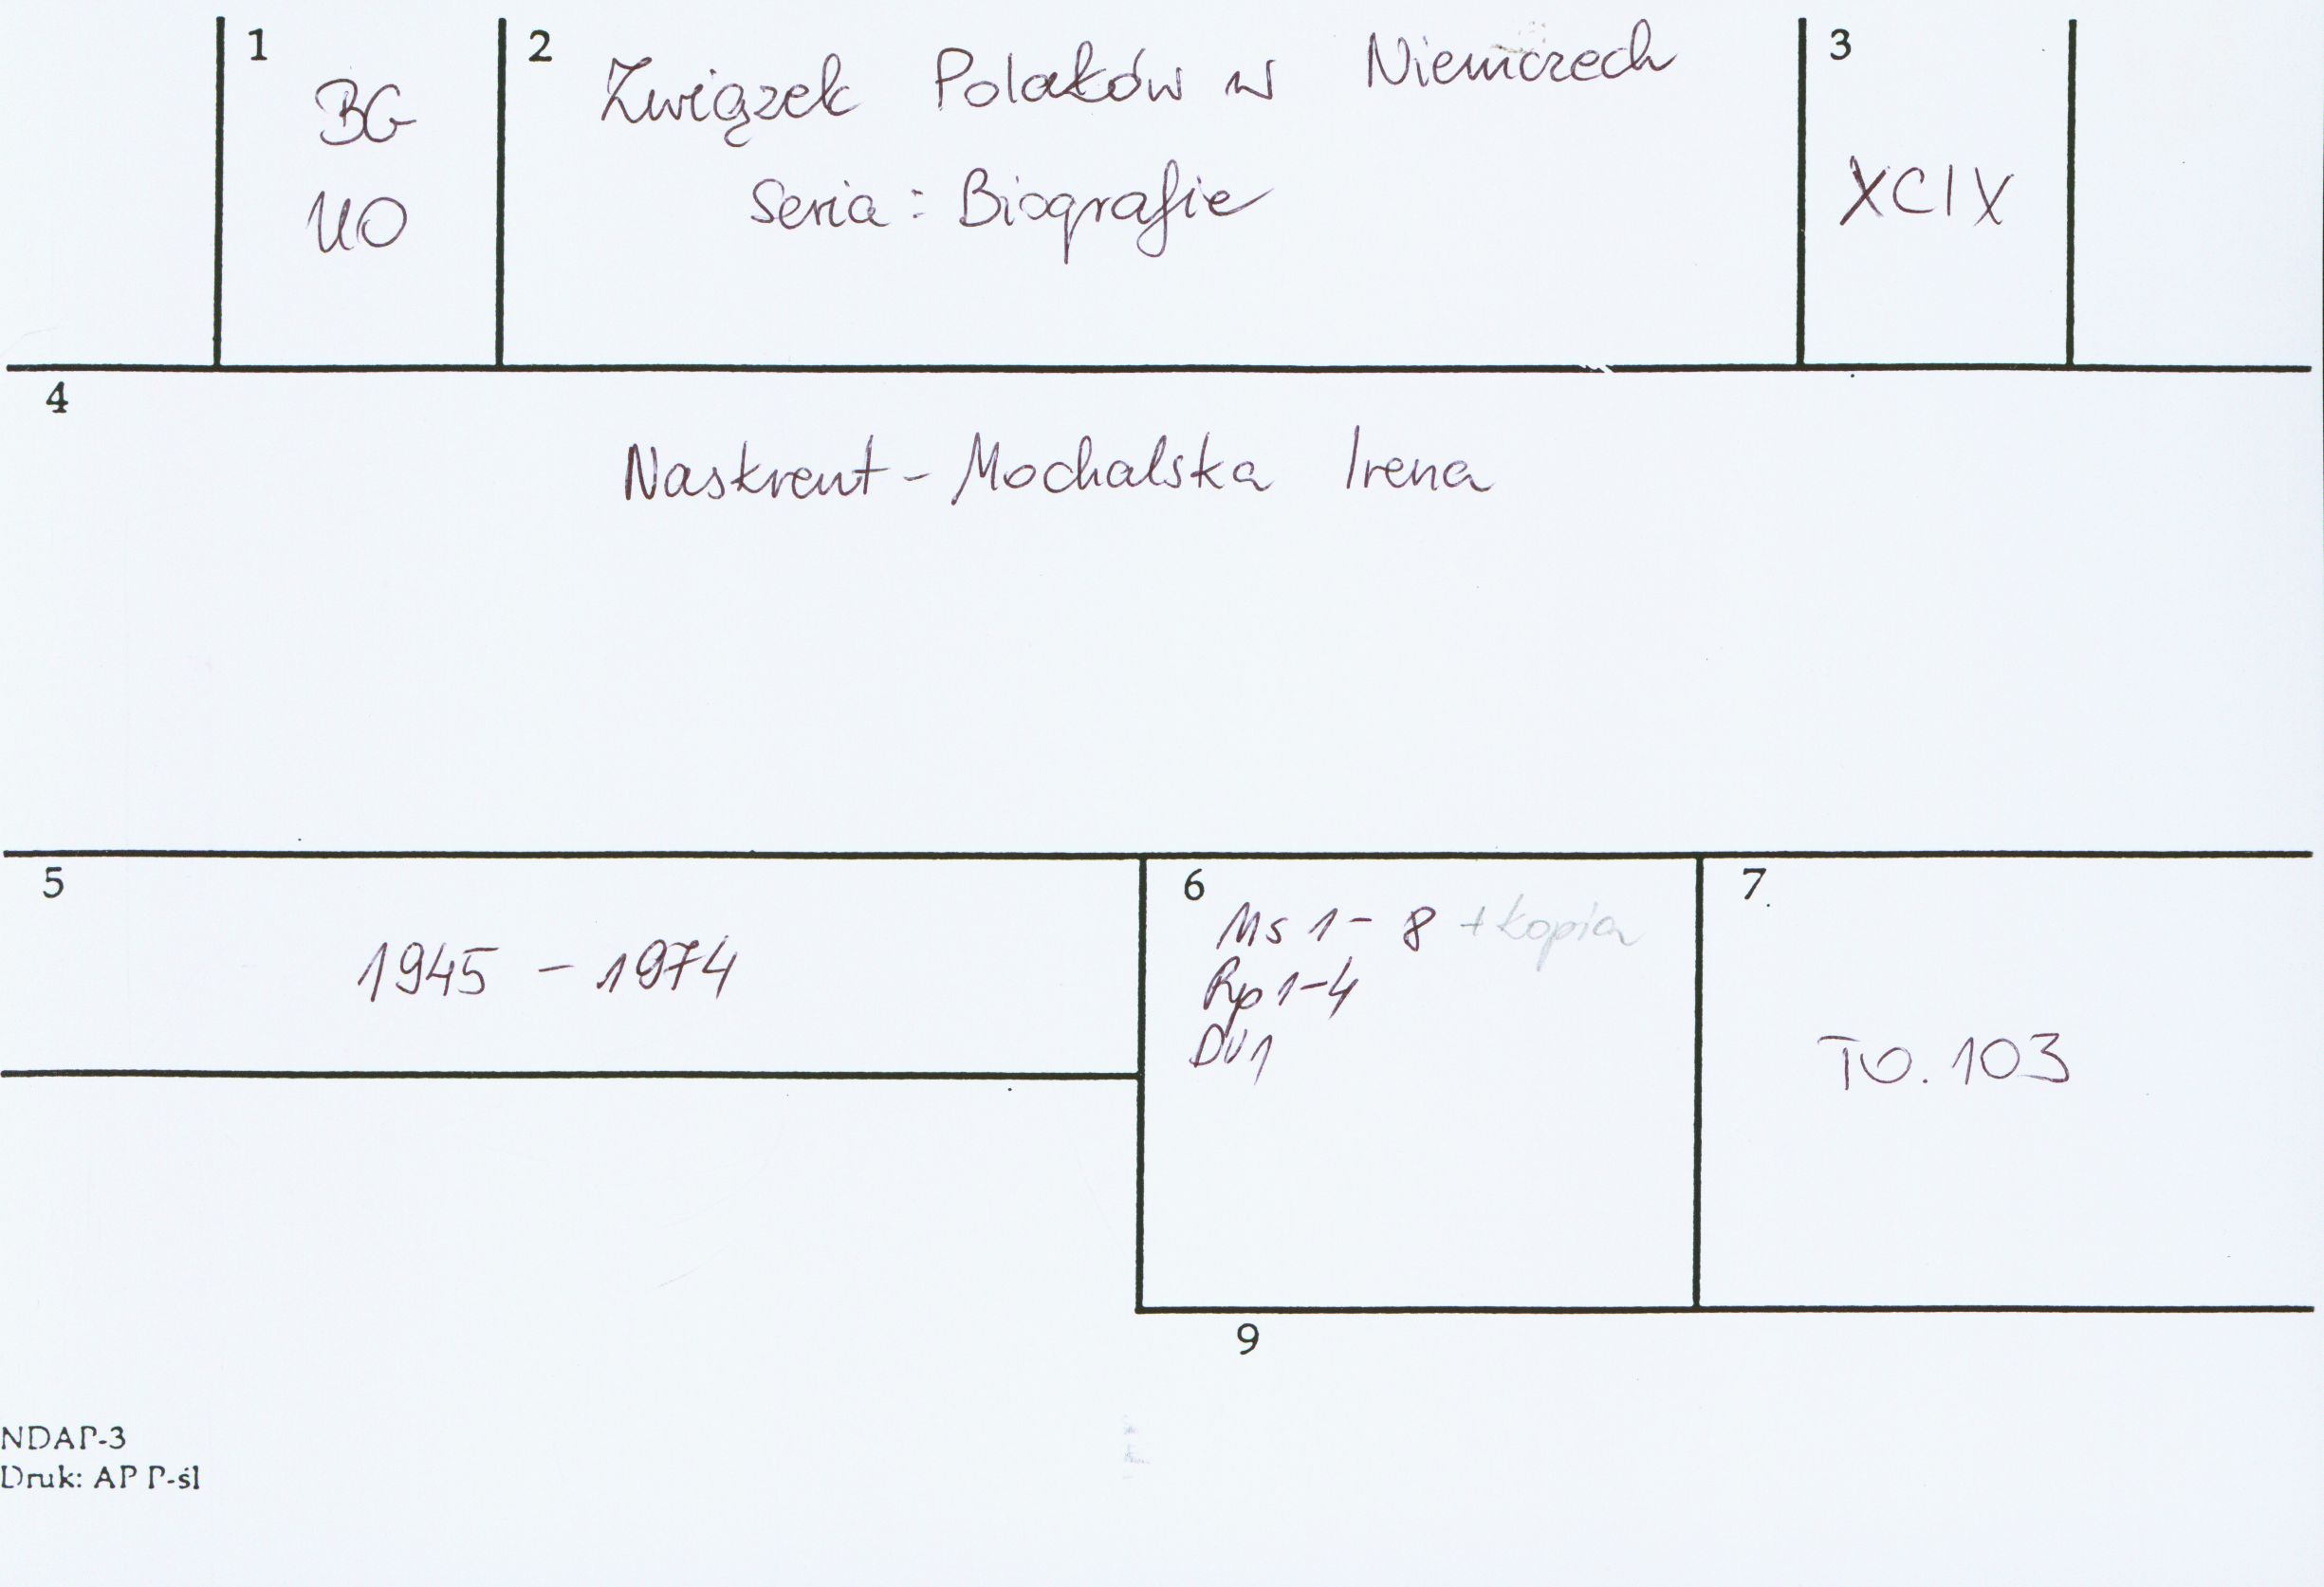 1
BG
UO
2
Związek Polaków w Niemczech
Seria: Biografie
3
XCIX
4
Naskrent-Mochalska Irena
5
1945 - 1974
6
Ms 1- 8 +kopia
Rp 1-4
DU1
7
TO. 103
9
NDAP-3
Druk: AP P-śl